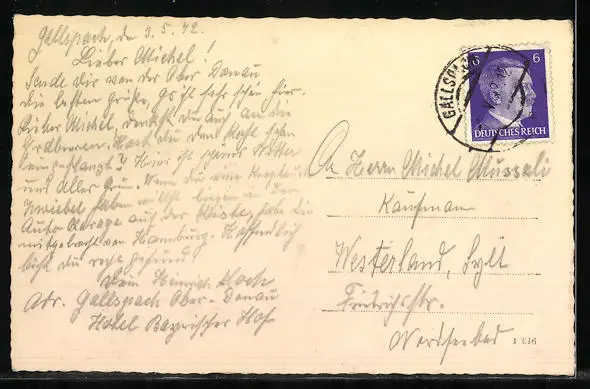 Gallspach, den 3.5.42.
Lieber Michel!
Sende Dir von der Ober Donau
die besten Grüße, es ist sehr schön hier.
Lieber Michel, denkst Du auch an die
Erdbeeren. Hast du den Kopf
eingepflanzt? Hier ist schönes Wetter
und alles Grün. Wenn du eine
Zwiebel haben willst liegen in der
Auto Garage auf der Kiste, habe die
mitgebracht von Hamburg. Hoffentlich
bist du recht gesund!
Dein Heinrich Koch
Adr. Gallspach Ober-Donau
Hotel Bayrischer Hof
GALLSPACH
6 6
DEUTSCHES REICH
An Herrn Michel Mussali
Kaufman
Westerland, Sylt
Friedrichstr.
Nordseebad
1 616